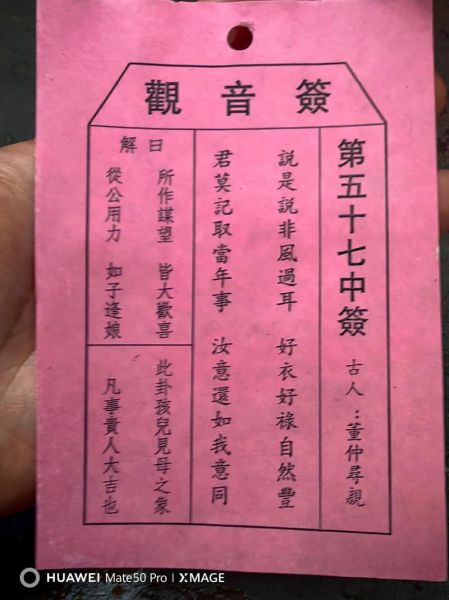 觀音簽
第五十七中簽 古人：董仲尋親
說是說非風過耳 好衣好祿自然豐
君莫記取當年事 汝意還如我意同
解曰
所作謀望 皆大歡喜
從公用力 如子逢娘
此卦孩兒見母之象
凡事貴人大吉也
HUAWEI Mate50 Pro | XMAGE